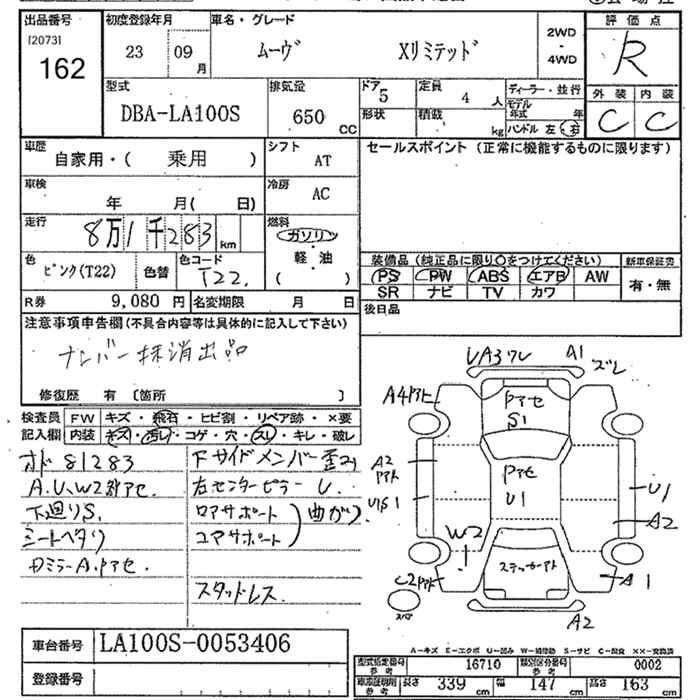 出品番号 初度登録年月 車名・グレード 評価点
[2073] 162 23 09 月 ムーヴ Xリミテッド 2WD・4WD R
型式 排気量 ドア 定員 ディーラー・並行 外装 内装
DBA-LA100S 650 CC 5 4 人 モデル年式 年 C C
形状 積載 kg ハンドル 左 右
車歴 自家用・( 乗用 ) シフト AT セールスポイント (正常に機能するものに限ります)
車検 年 月( 日) 冷房 AC
走行 8万1千283 km 燃料 ガソリン・軽油 ( )
色 ピンク(T22) 色替 色コード T22 装備品 (純正品に限り○をつけてください) 新車保証書
PS PW ABS エアB AW 有・無
R券 9,080 円 名変期限 月 日 SR ナビ TV カワ
注意事項申告欄(不具合内容等は具体的に記入して下さい) 後日品
ナンバー抹消出品
修復歴 有 〔箇所 〕
検査員 FW キズ・飛石・ヒビ割・リペア跡・×要
記入欄 内装 キズ・汚レ・コゲ・穴・スレ・キレ・破レ
オド 81283 下サイドメンバー歪み
A.U.W2 アセ. 右センターピラー U.
下廻りS. ロアサポート 曲がり
シートヘタリ コアサポート
Dミラー A.Pアセ.
スタッドレス
UA3ワレ A1 ズレ
A4Pアト Pアセ S1
A2 Pアト Pアセ U1 U1
US1 A2
W2
C2Pアト ステッカーアト A1
スペア A2
車台番号 LA100S-0053406
登録番号
A-キズ E-エクボ U-凹み W-補修跡 S-サビ C-腐食 XX-交換済
型式指定番号 参考 16710 類別区分番号 参考 0002
車庫証明用 参考 長さ 339 cm 幅 147 cm 高さ 163 cm